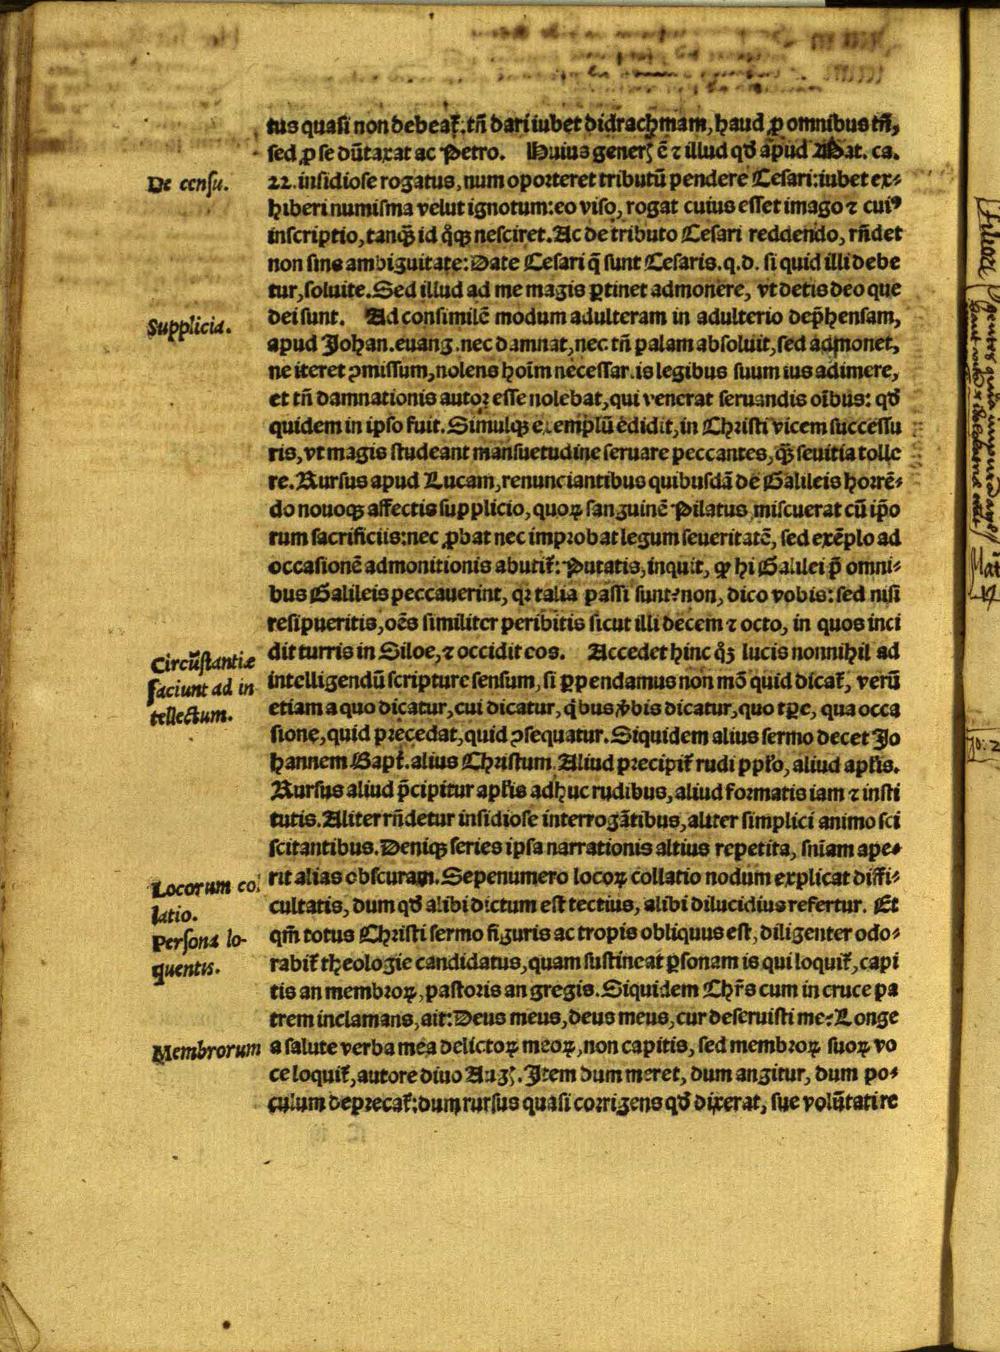 tus quasi non debeat̃.tñ dari iubet didrachmam, haud ꝓ omnibus tñ,
sed ꝓ se dũtaxat ac Petro. Huius generꝭ ẽ ⁊ illud qđ apud Mat. ca.
De censu.
22. insidiose rogatus, num oporteret tributũ pendere Cesari:iubet ex⸗
hiberi numisma velut ignotum:eo viso, rogat cuius esset imago ⁊ cuiꝰ
inscriptio, tanꝗ̃ id q̊qꝫ nesciret. Ac de tributo Cesari reddendo, rñdet
non sine ambiguitate: Date Cesari q̃ sunt Cesaris.q.d. si quid illi debe
tur, soluite. Sed illud ad me magis ꝑtinet admonere, vt detis deo que
dei sunt. Ad consimilẽ modum adulteram in adulterio dep̃hensam,
Supplicia.
apud Johan.euang.nec damnat, nec tñ palam absoluit, sed admonet,
ne iteret ꝯmissum, nolens hoĩm necessarijs legibus suum ius adimere,
et tñ damnationis autor esse nolebat, qui venerat seruandis oĩbus: qđ
quidem in ipso fuit. Simulqꝫ exemplũ edidit, in Christi vicem successu
ris, vt magis studeant mansuetudine seruare peccantes, ꝗ̃ seuitia tolle
re. Rursus apud Lucam, renunciantibus quibusdã de Galileis horrẽ⸗
do nouoqꝫ affectis supplicio, quoꝝ sanguinẽ Pilatus miscuerat cũ ip̃o
rum sacrificijs:nec ꝓbat nec improbat legum seueritatẽ, sed exẽplo ad
occasionẽ admonitionis abutit̃: Putatis, inquit, ꝙ hi Galilei p̃ omni⸗
bus Galileis peccauerint, qꝛ talia passi sunt? non, dico vobis: sed nisi
resipueritis, oẽs similiter peribitis sicut illi decem ⁊ octo, in quos inci
dit turris in Siloe, ⁊ occidit eos. Accedet hinc q̊qꝫ lucis nonnihil ad
Circũstantiæ
faciunt ad in
tellectum.
intelligendũ scripture sensum, si ꝑpendamus non mõ quid dicat̃, verũ
etiam a quo dicatur, cui dicatur, qͥbus v̾bis dicatur, quo tꝑe, qua occa
sione, quid precedat, quid ꝯsequatur. Siquidem alius sermo decet Jo
hannem Bapt̃. alius Christum. Aliud precipit̃ rudi pplo, aliud apl̃is.
Rursus aliud p̃cipitur apl̃is adhuc rudibus, aliud formatis iam ⁊ insti
tutis. Aliter rñdetur insidiose interrogãtibus, aliter simplici animo sci
scitantibus. Deniqꝫ series ipsa narrationis altius repetita, sñiam ape⸗
rit alias obscuram. Sepenumero locoꝝ collatio nodum explicat diffi⸗
Locorum col
latio.
cultatis, dum qđ alibi dictum est tectius, alibi dilucidius refertur. Et
qm̃ totus Christi sermo figuris ac tropis obliquus est, diligenter odo⸗
Persona lo-
quentis.
rabit̃ theologie candidatus, quam sustineat ꝑsonam is qui loquit̃, capi
tis an membroꝝ, pastoris an gregis. Siquidem Chr̃s cum in cruce pa
trem inclamans, ait: Deus meus, deus meus, cur deseruisti me? Longe
Membrorum
a salute verba mea delictoꝝ meoꝝ, non capitis, sed membroꝝ suoꝝ vo
ce loquit̃, autore diuo Augꝭ. Item dum meret, dum angitur, dum po⸗
culum deprecat̃:dum rursus quasi corrigens qđ dixerat, sue volũtati re